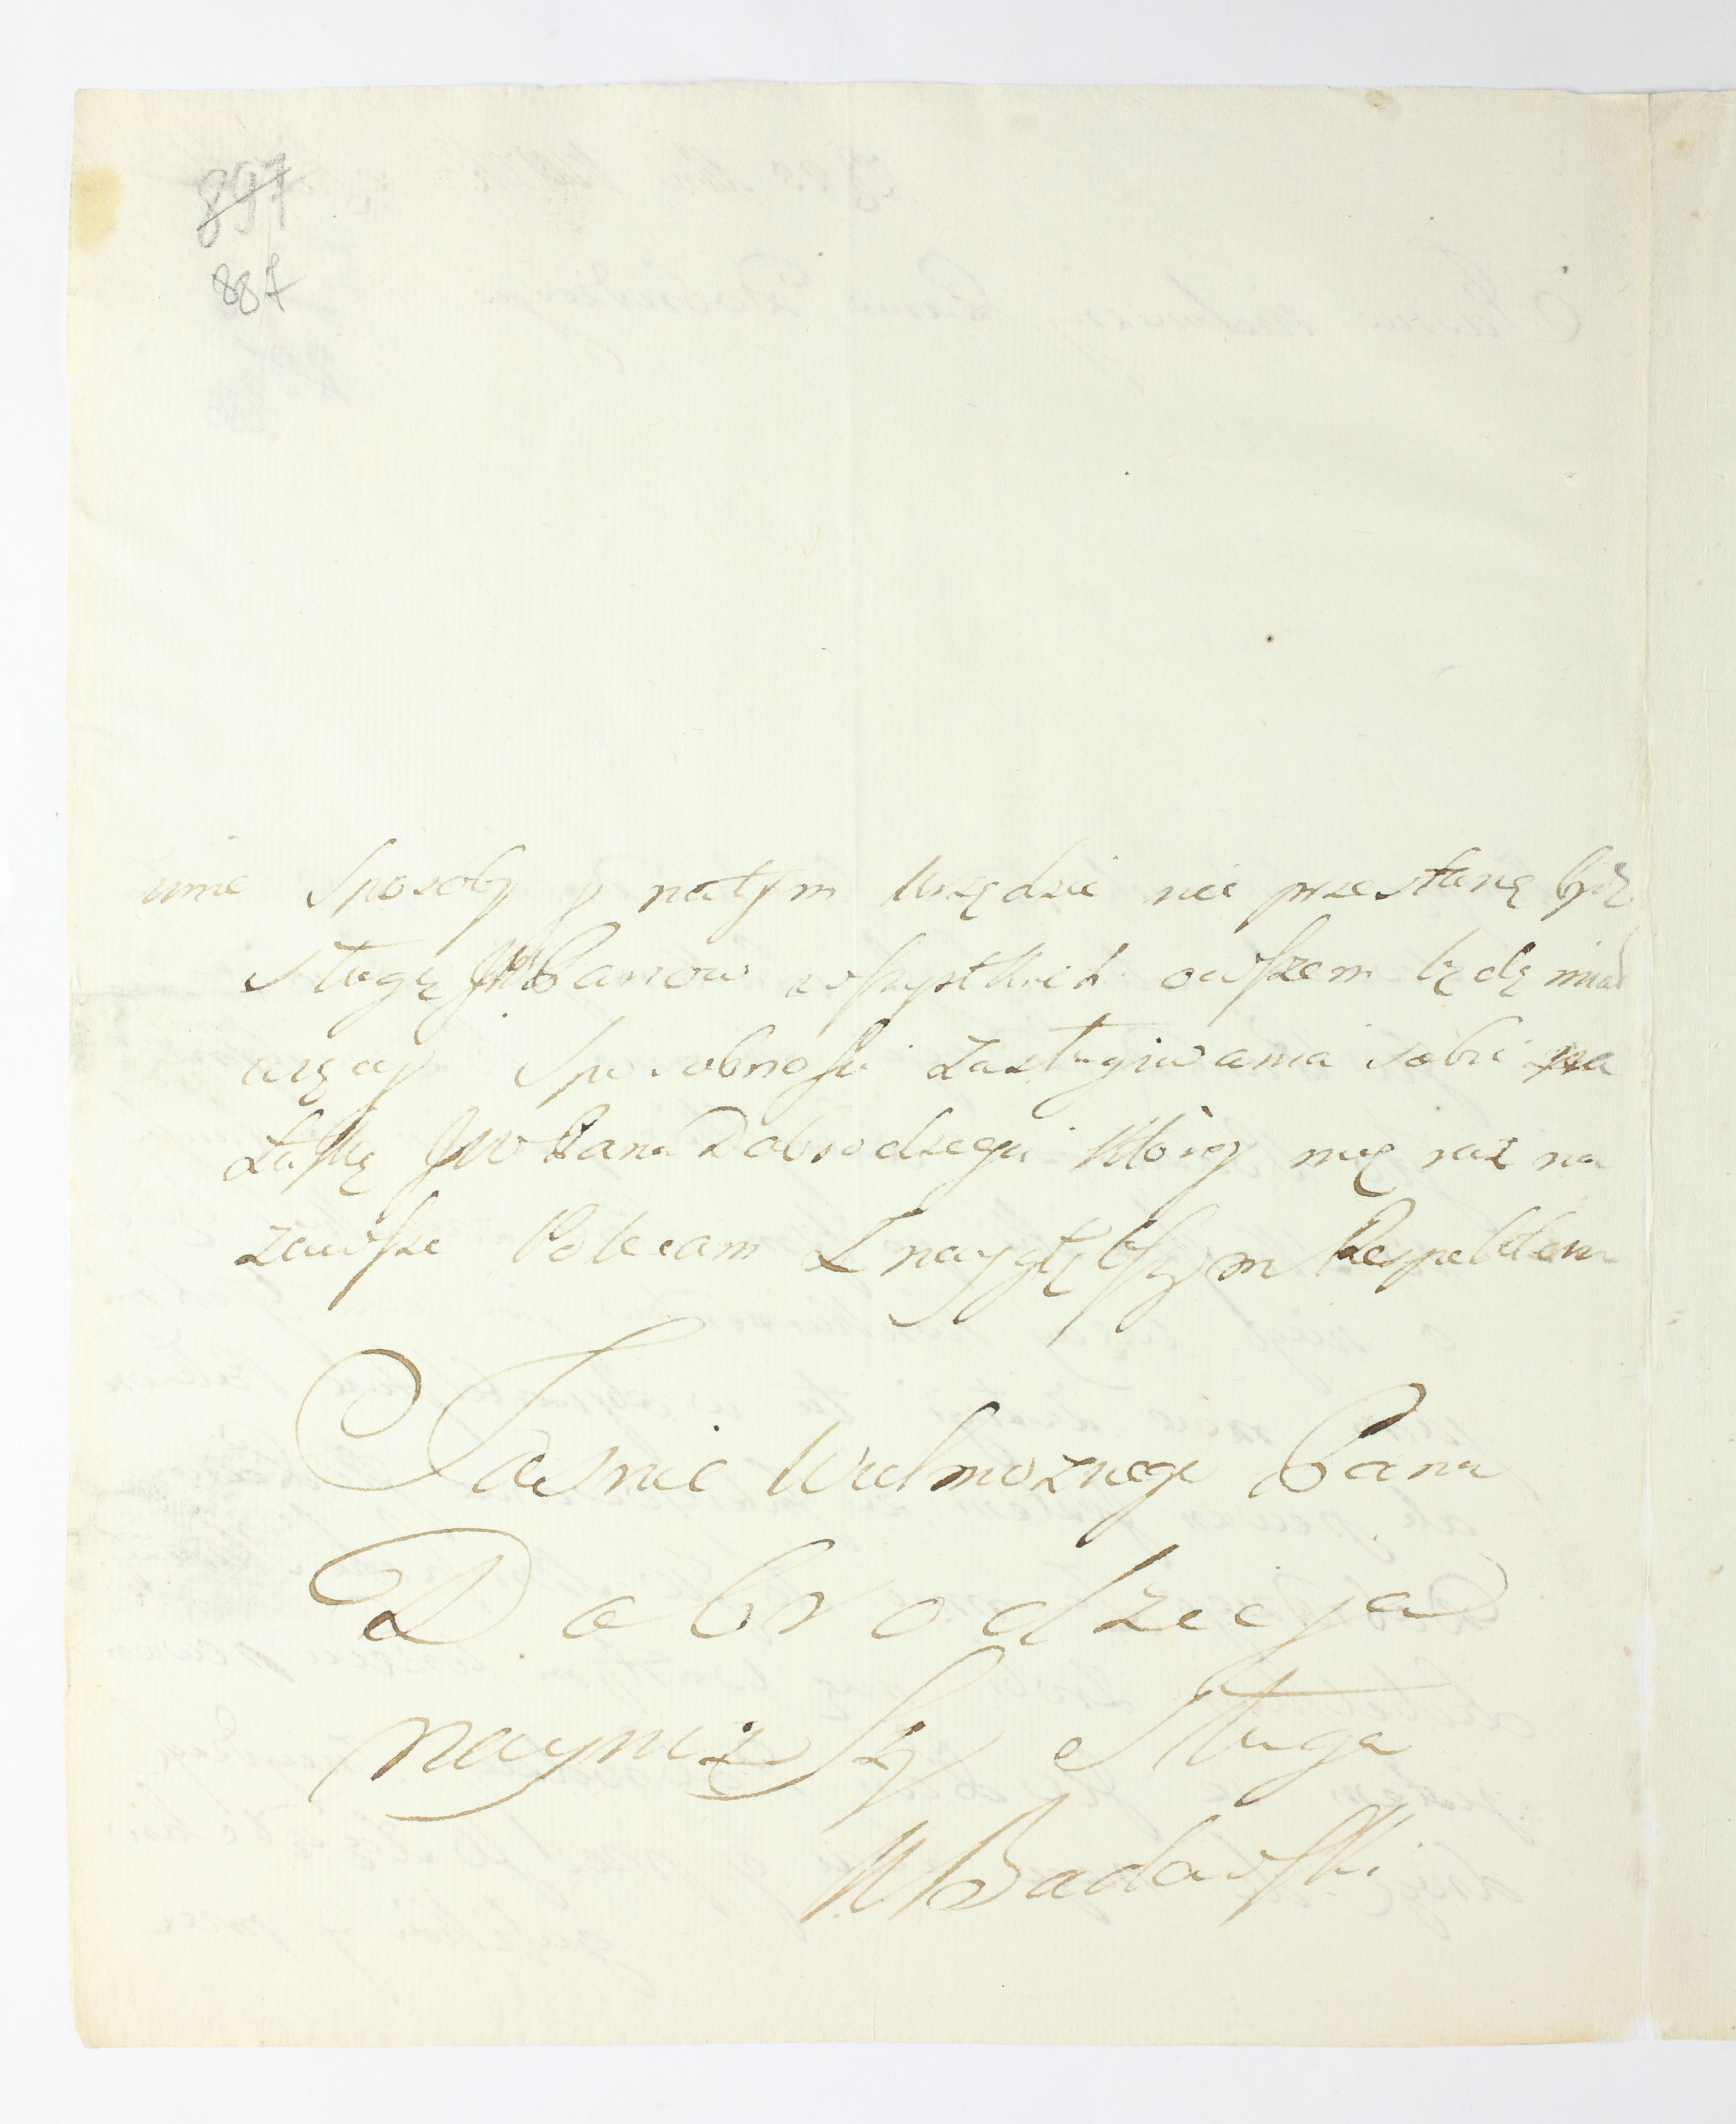 897
887
inne sposoby y natym Urzędzie nie przestanę bydź
sługą JW Panow wszystkich owszem będę miał
więcey sposobnosci zasługiwania sobie na
Łaskę JW Pana Dobrodzieja ktory mię raz na
zawsze Polecam Z naygłębszym Respektem
Jasnie Wielmoznego Pana
Dobrodzieja
nayniższy sługa
MBadowski